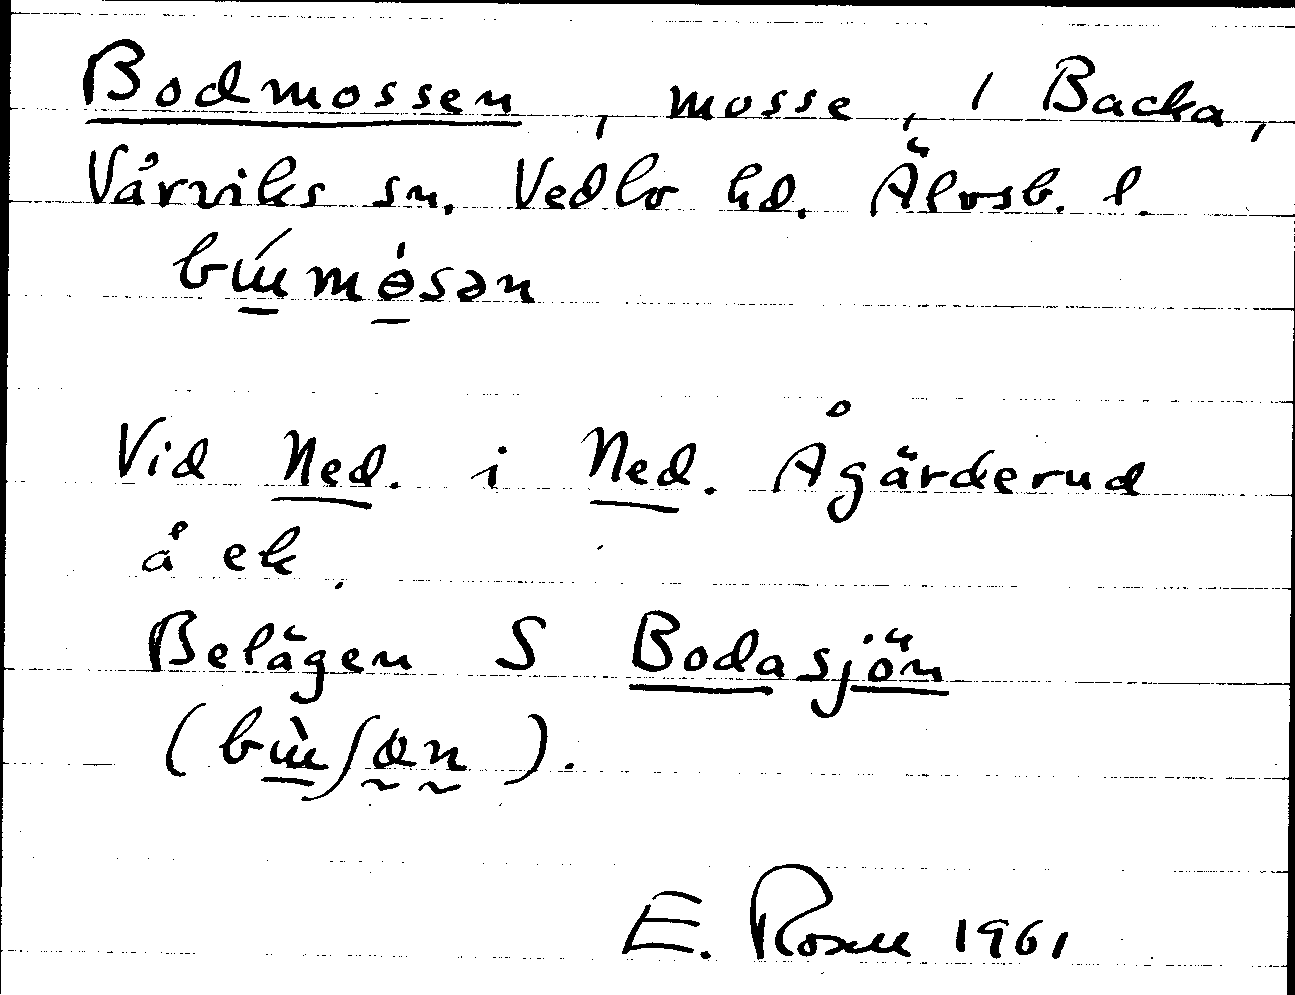 Bodmossen, mosse, 1 Backa,
Vårviks sn. Vedbo hd. Älvsb. l.
bɯ́mɵ̀sən
Vid Ned. i Ned. Ågärderud
å ek.
Belägen S Bodasjön
1961